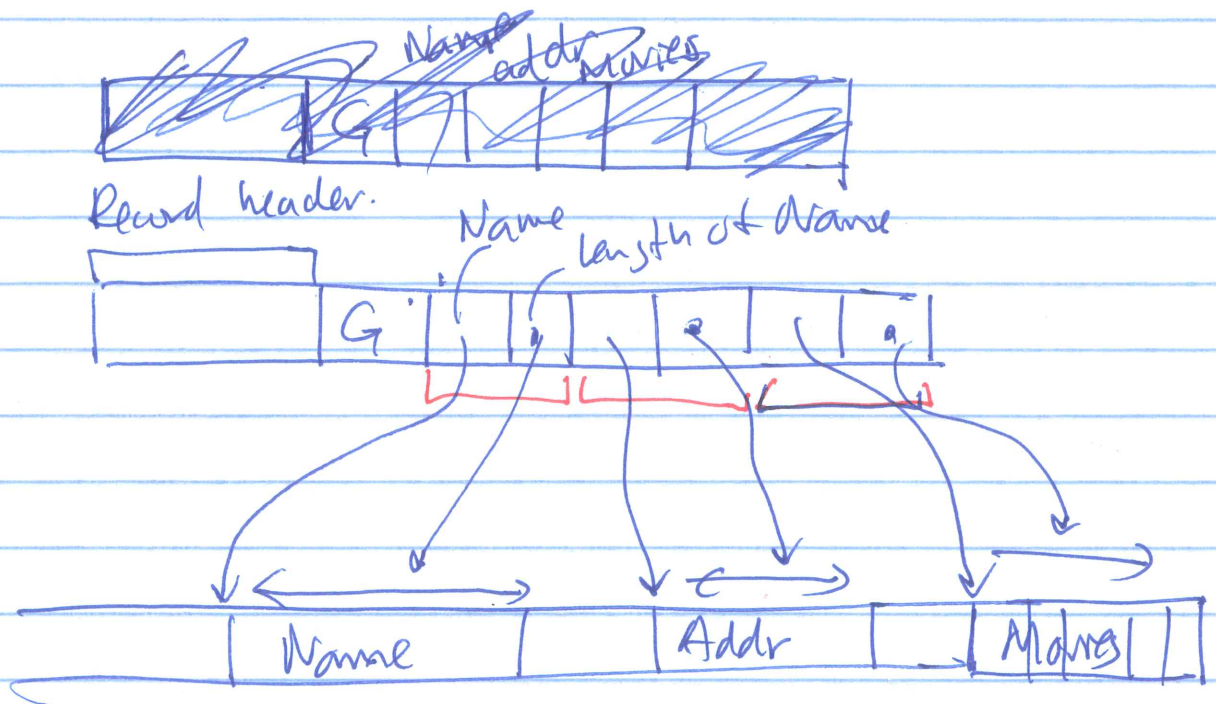 Name
addr Movies
G
Record header.
Name
length of Name
G
Name
Addr
Movies